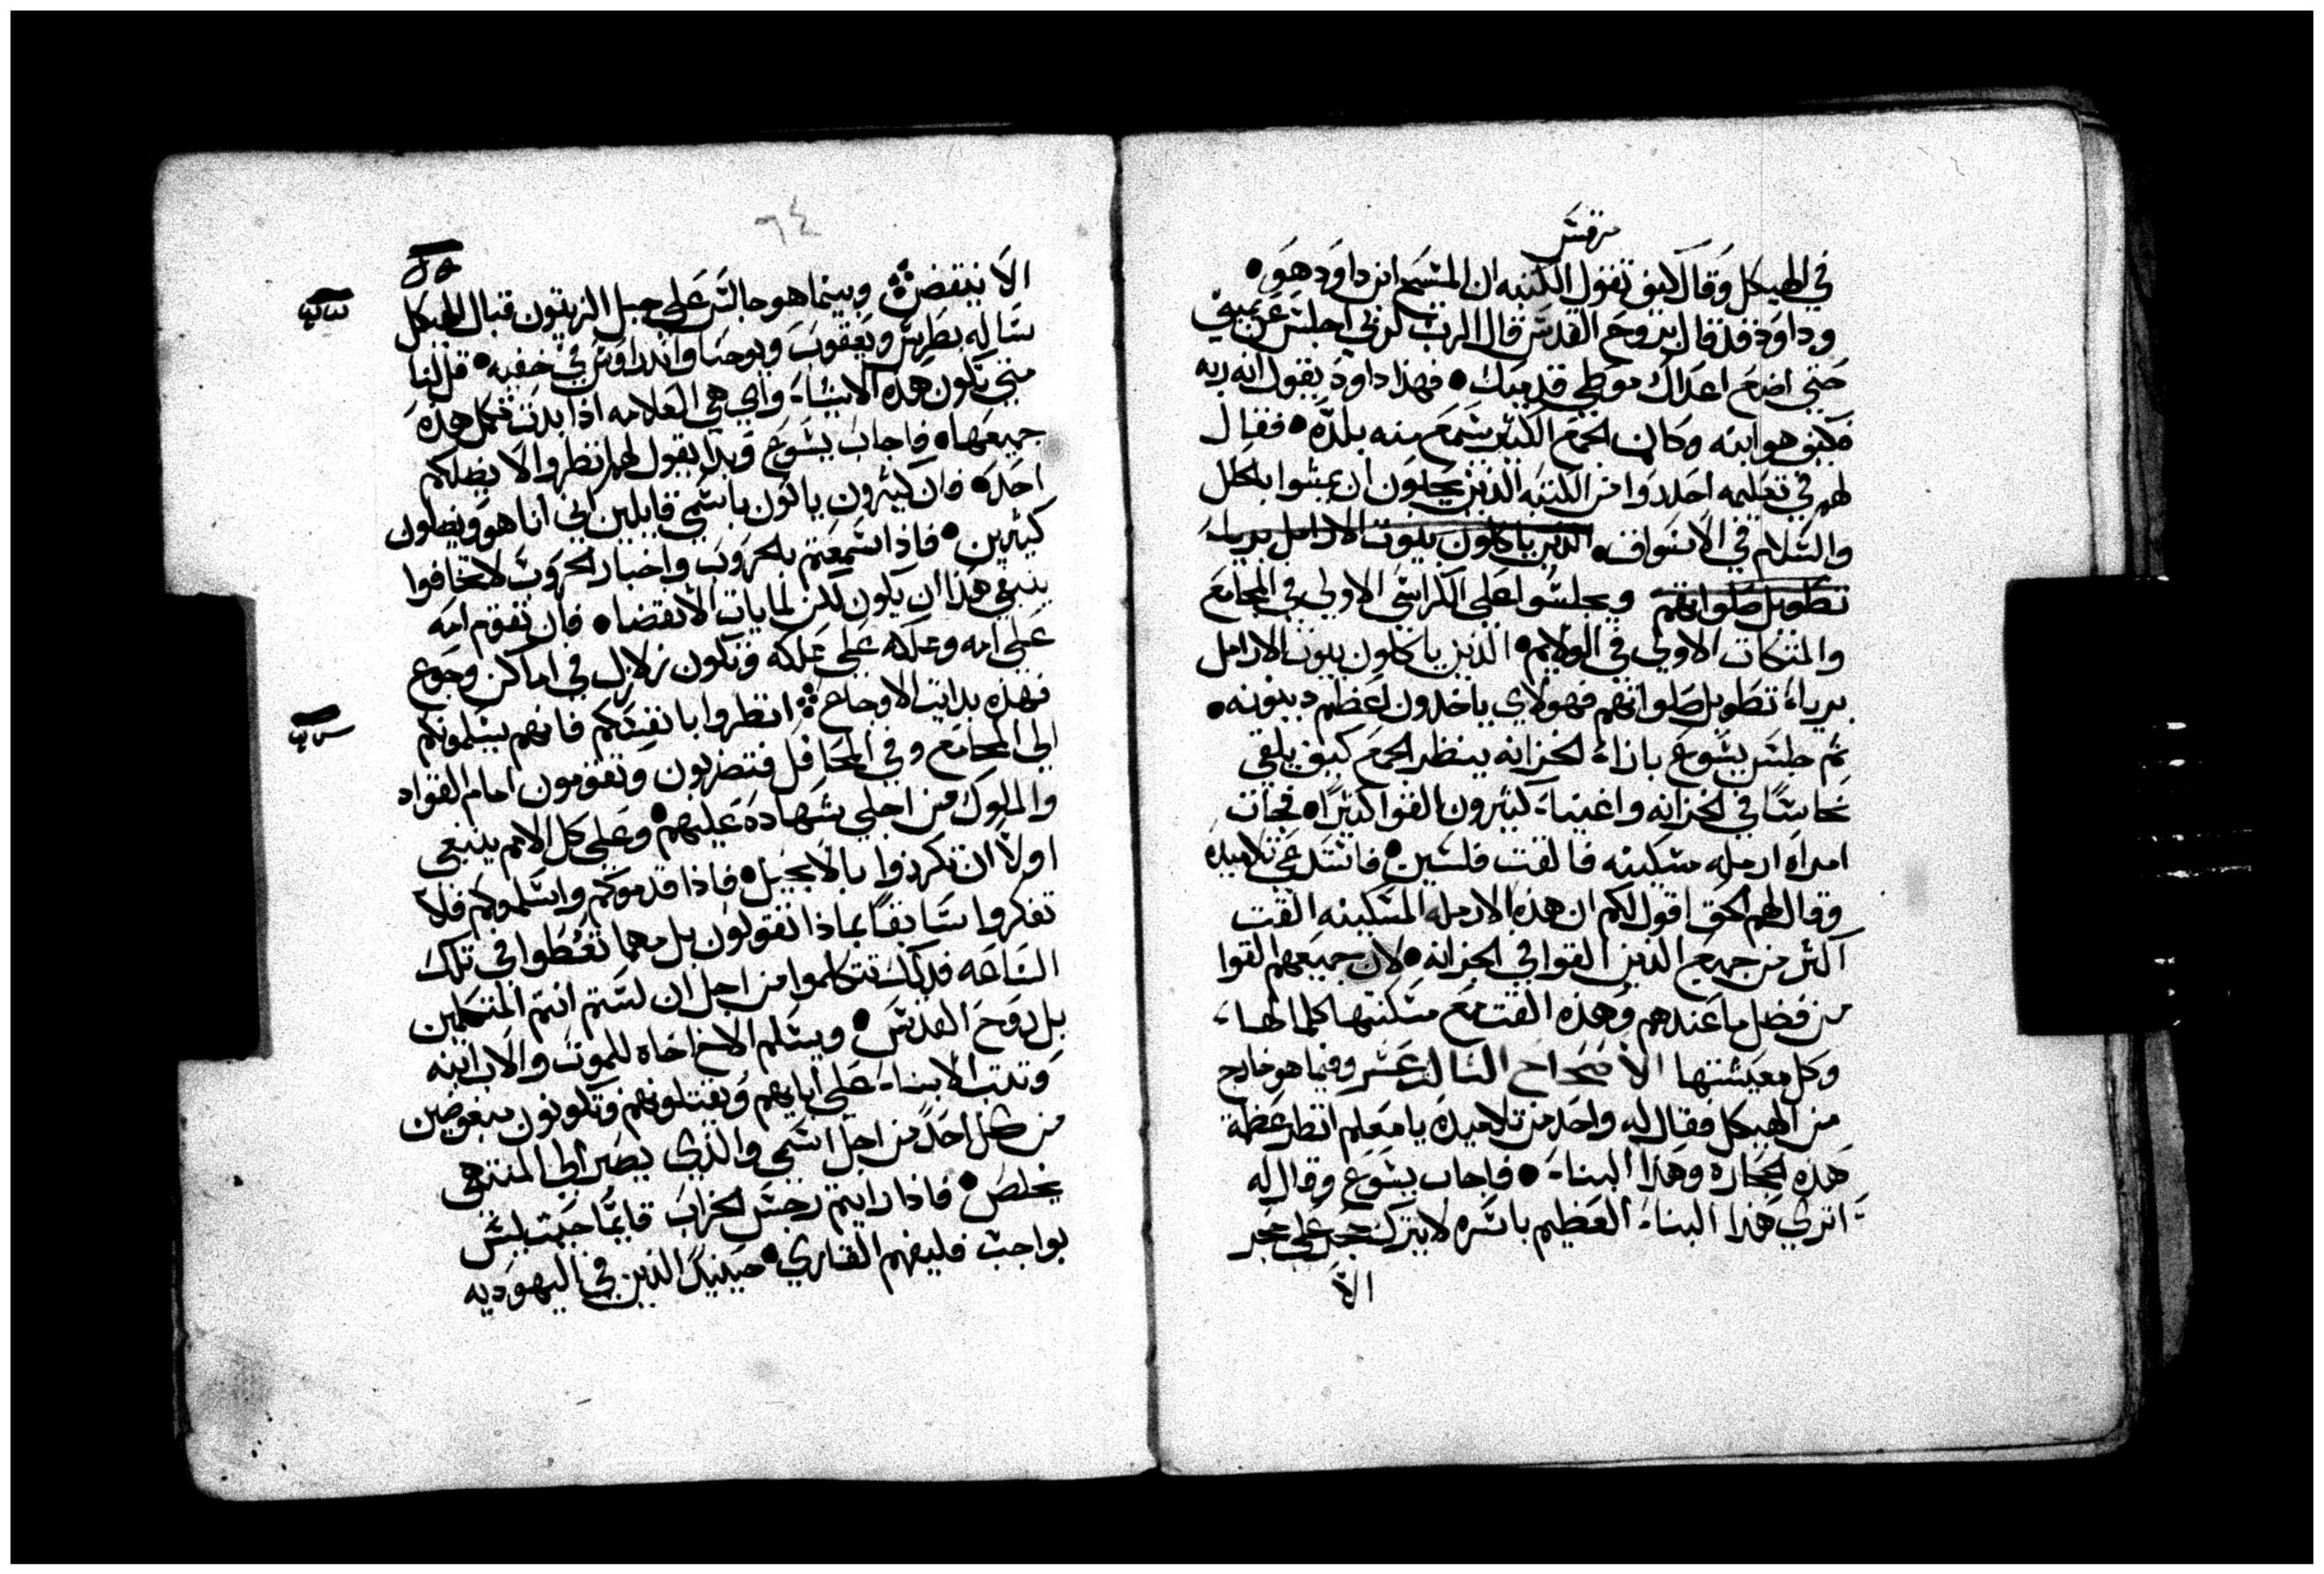 مرقس
في الهيكل وقال كيف تقول الكتبه ان المسيح ابن داود هو •
وداود فقد قال بروح القدس قال الرب لربي اجلس عن يميني
حتي اضع اعداك موطي قدميك • فهذا داود يقول انه ربه
فكيف هو ابنه وكان الجمع الكثير يسمع منه بلذه • فقال
لهم في تعليمه احدروا من الكتبه الذين يحبون ان يمشوا بالحلل
والسلام في الاسواق • الذين ياكلون بيوت الارامل برياء
تطويل صلواتهم ويجلسوا علي الكراسي الاولي في المجامع
والمتكات الاولي في الولايم • الذين ياكلون بيوت الارامل
برياء تطويل صلواتهم فهولاي ياخدون اعظم دينونه •
ثم جلس يشوع بازاء الخزانه ينظر الجمع كيف يلقي
نحاسًا في الخزانه واغنياء كثيرون القوا كثيرًا • فجات
امراه ارمله مسكينه فالقت فلسين • فاستدعي تلاميده
وقال لهم الحق اقول لكم ان هذه الارمله المسكينه القت
اكثر من جميع الذين القوا في الخزانه • لان جميعهم القوا
من فضل ما عندهم وهذه القت مع مسكنتها كلما لها
وكل معيشتها الاصحاح الثالث عشر وفيما هو خارج
من الهيكل فقال له واحد من تلاميده يا معلم انظر عظمة
هذه الحجاره وهذا البناء • فاجاب يشوع وقال له
اتري هذا البناء العظيم باسره لا يترك حجر علي حجر
الا
٦٤
الا ينتقض وبينما هو جالس علي جبل الزيتون قبال الهيكل
ساله بطرس ويعقوب ويوحنا واندراوس في خفيه • قل لنا
متي تكون هذه الاشياء واي هي العلامه اذا بدت تكمل هذه
جميعها • فاجاب يشوع وبدا يقول لهم انظروا لا يضلكم
احد • فان كثيرون ياتون باسمي قايلين اني انا هو ويضلون
كثيرين • فاذا سمعتم بالحروب واخبار الحروب لا تخافوا
ينبغي هذا ان يكون لكن لما يات الانقضاء • فان تقوم امه
علي امه ومملكه علي مملكه وتكون زلازل في اماكن وجوع
فهذه بدايت الاوجاع انظروا بانفسكم فانهم يسلمونكم
الي المجامع وفي المحافل فتضربون وتقومون امام القواد
والملوك من اجلي شهاده عليهم • وعلي كل الامم ينبغي
اولًا ان تكرزوا بالانجيل • فاذا قدموكم واسلموكم فلا
تفكروا سابقًا بماذا تقولون بل مهما تعطوا في تلك
الساعه فدلك تتكلموا من اجل ان لستم انتم المتكلمين
بل روح القدس • ويسلم الاخ اخاه للموت والاب ابنه
وتثب الابناء علي ابايهم ويقتلونهم وتكونون مبغوضين
من كل احد من اجل اسمي والذي يصبر الي المنتهي
يخلص • فاذا رايتم رجس الخراب قايمًا حيث ليس
بواجب فليفهم القاري • حينيذ الذين في اليهوديه